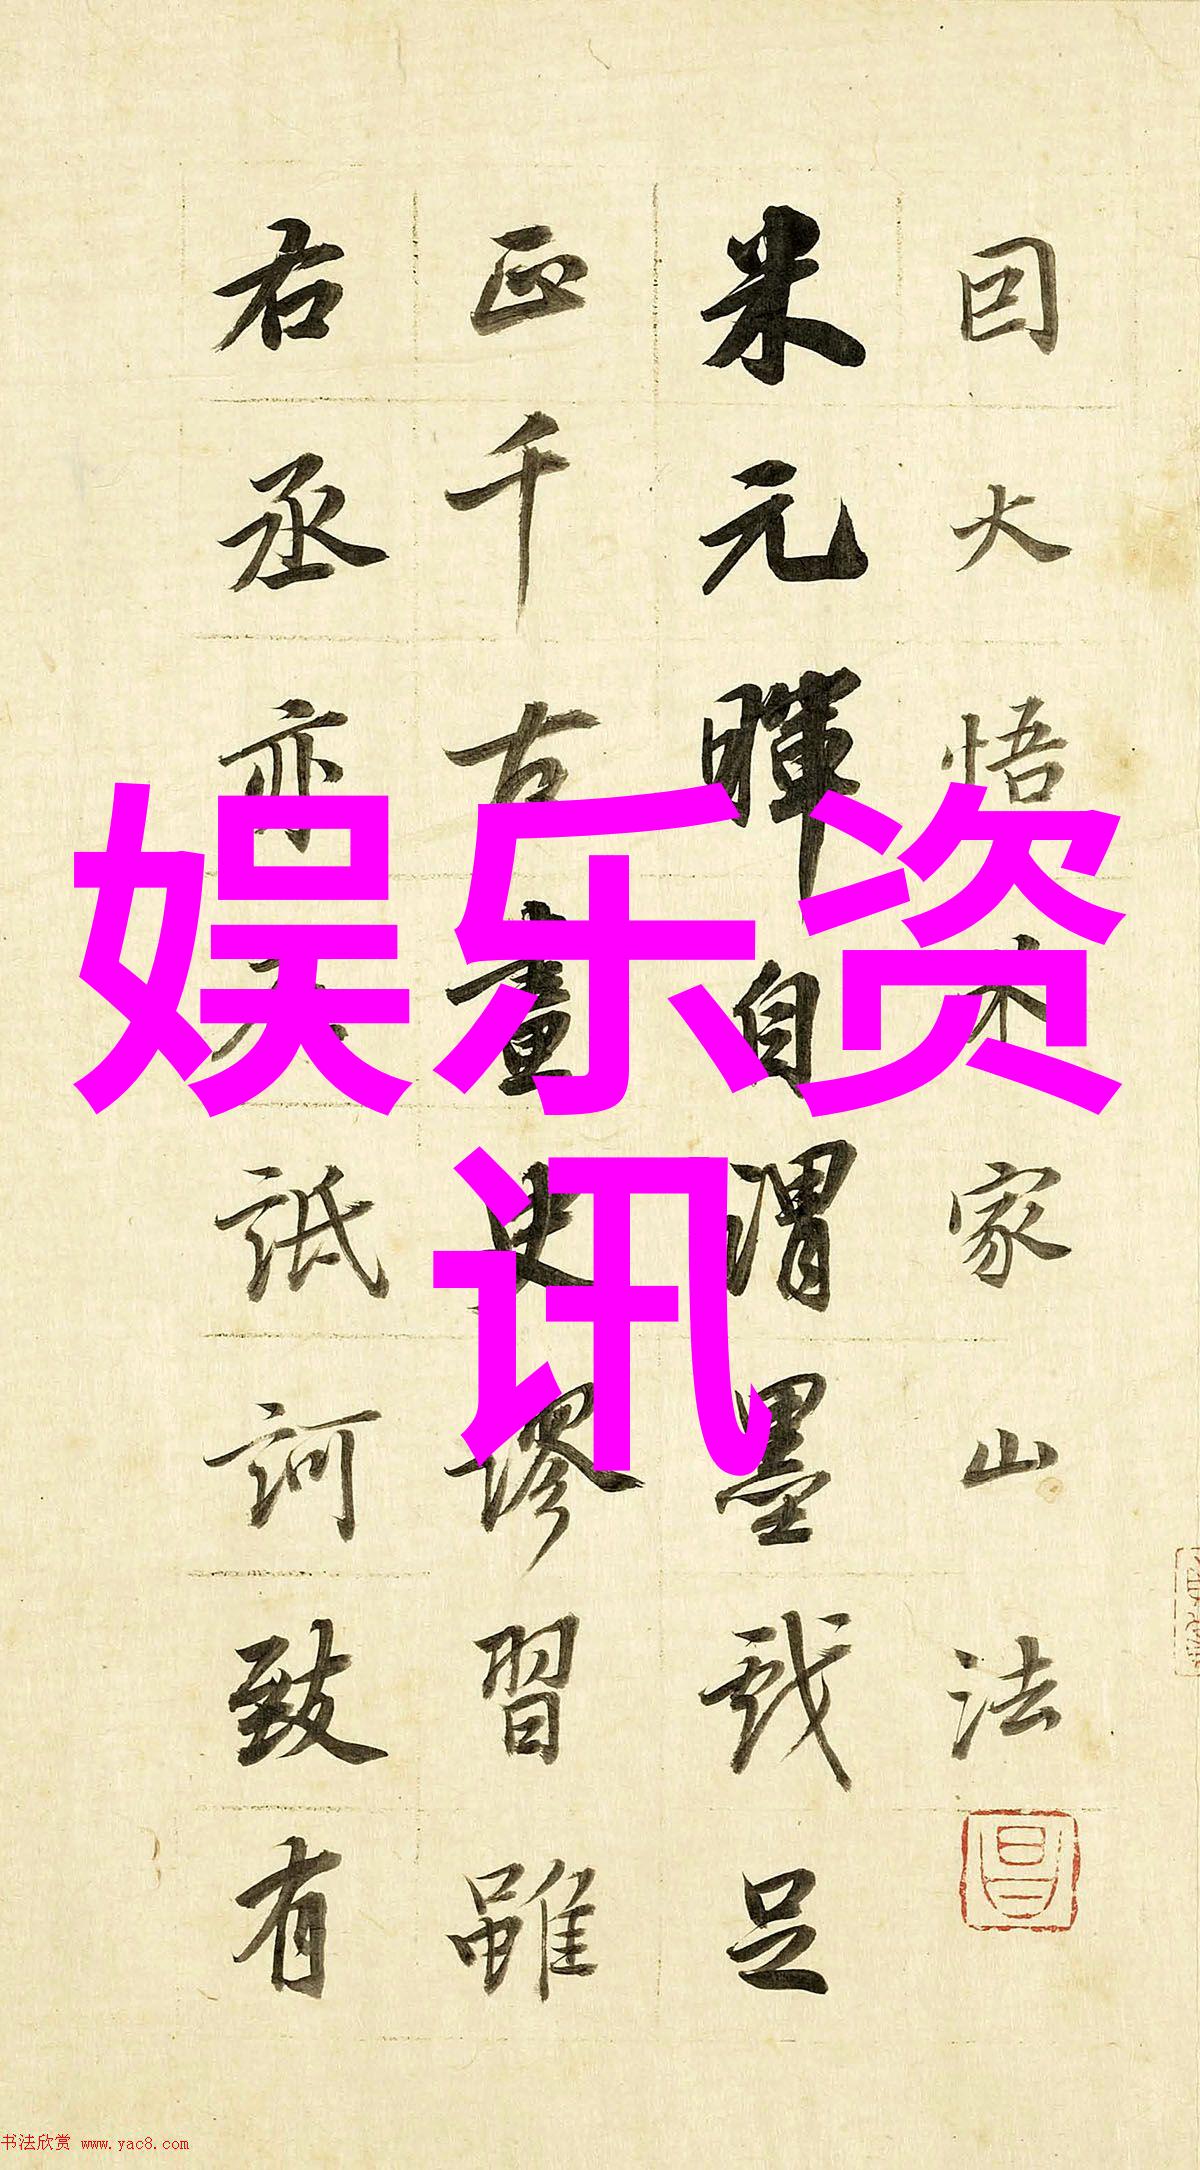 因大悟米家山法
米元暉自謂墨戲足
正千古畫史謬習雖
右丞亦在詆訶致有
娱乐资
讯
书法欣赏 www.yac8.com